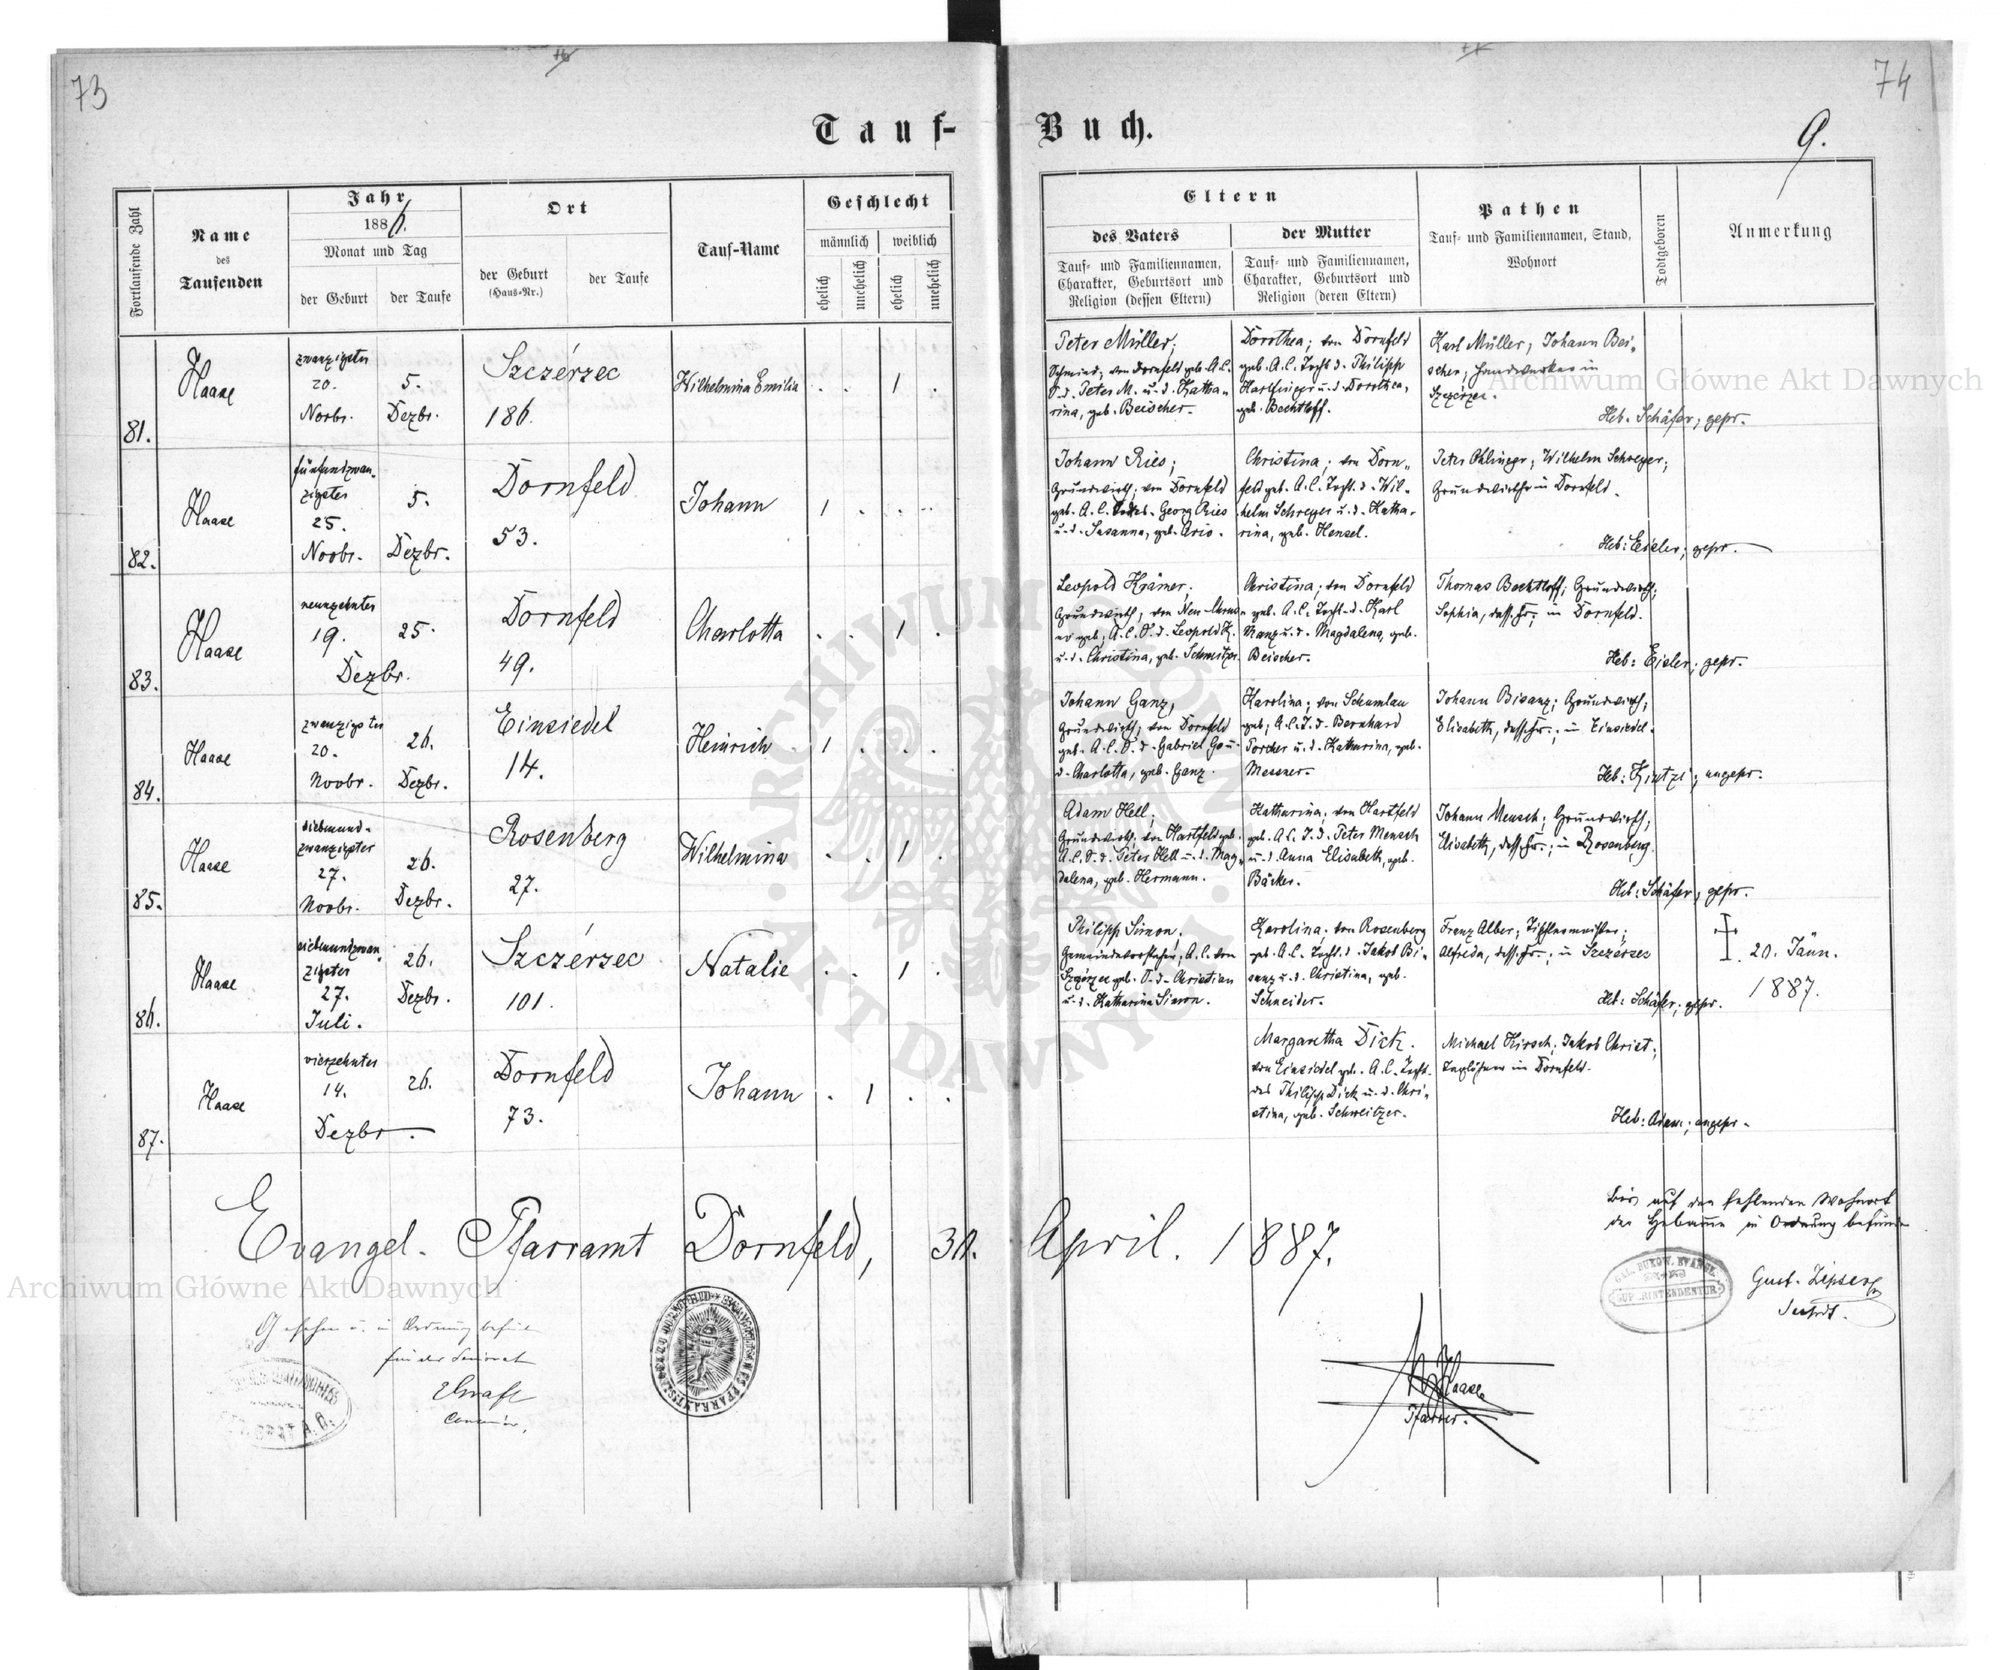 73
74
Tauf-
Buch.
9.
Fortlaufende Zahl
Name
des
Taufenden
Jahr
1886.
Monat und Tag
der Geburt
der Taufe
Ort
der Geburt
(Haus-Nr.)
der Taufe
Tauf-Name
Geschlecht
männlich
weiblich
ehelich
unehelich
ehelich
unehelich
Eltern
des Vaters
der Mutter
Tauf- und Familiennamen,
Charakter, Geburtsort und
Religion (dessen Eltern)
Tauf- und Familiennamen,
Charakter, Geburtsort und
Religion (deren Eltern)
Pathen
Tauf- und Familiennamen, Stand,
Wohnort
Todtgeboren
Anmerkung
81.
Haase
zwanzigster
20.
Novbr.
5.
Dezbr.
Szczérzec
186.
Wilhelmina Emilia
. . 1 .
Peter Müller;
Schmied; von Dornfeld geb. A.C.
S. d. Peter M. u. d. Katha-
rina, geb. Beischer.
Dorothea; von Dornfeld
geb. A.C. Tocht. d. Philipp
Harlfinger u. d. Dorothea,
geb. Bechtloff.
Karl Müller; Johann Bei-
scher; Handwerker in
Szczérzec.
Heb. Schäfer; gepr.
82.
Haase
fünfundzwan-
zigster
25.
Novbr.
5.
Dezbr.
Dornfeld
53.
Johann
1 . . .
Johann Ries;
Grundwirth; von Dornfeld
geb. A.C. Georg Ries
u. d. Susanna, geb. Aris.
Christina; von Dorn-
feld geb. A.C. Tocht. d. Wil-
helm Schreyer u. d. Katha-
rina, geb. Hensel.
Peter Ohlinger; Wilhelm Schreyer;
Grundwirthe in Dornfeld.
Heb: Eisler; gepr.
83.
Haase
neunzehnter
19.
25.
Dezbr.
Dornfeld
49.
Charlotta
. . 1 .
Leopold Krämer;
Grundwirth; von Neu-
geb; A.C. S. d. Leopold K.
u. d. Christina, geb. Schweitzer.
Christina; von Dornfeld
geb. A.C. Tocht. d. Karl
Manz u. d. Magdalena, geb.
Beischer.
Thomas Bechtloff; Grundwirth;
Sophia, dess. Fr.; in Dornfeld.
Heb: Eisler; gepr.
84.
Haase
zwanzigster
20.
Novbr.
26.
Dezbr.
Einsiedel
14.
Heinrich
1 . . .
Johann Ganz,
Grundwirth; von Dornfeld
geb. A.C. S. d. Gabriel G. u.
d. Charlotta, geb. Ganz.
Karolina; von Schumlau
geb; A.C. T. d. Bernhard
Porcher u. d. Katharina, geb.
Messner.
Johann Bisanz; Grundwirth;
Elisabeth, dess. Fr.; in Einsiedel.
Heb: Kintzi; ungepr.
85.
Haase
siebenund-
zwanzigster
27.
Novbr.
26.
Dezbr.
Rosenberg
27.
Wilhelmina
. . 1 .
Adam Hell;
Grundwirth; von Hartfeld geb.
A.C. S. d. Peter Hell u. d. Mag-
dalena, geb. Hermann.
Katharina; von Hartfeld
geb. A.C. T. d. Peter Mensch
u. d. Anna Elisabeth, geb.
Bäcker.
Johann Mensch; Grundwirth;
Elisabeth, dess. Fr.; in Rosenberg.
Heb: Schäfer; gepr.
86.
Haase
siebenundzwan-
zigster
27.
Juli.
26.
Dezbr.
Szczérzec
101.
Natalie
. . 1 .
Philipp Simon;
Gemeindevorsteher; A.C. von
geb. S. d. Christian
u. d. Katharina Simon.
Karolina; von Rosenberg
geb. A.C. Tocht. d. Jakob Bi-
sanz u. d. Christina, geb.
Schneider.
Franz Alber; Tischlermeister;
Alfreda, dess. Fr.; in Szczérzec
Heb: Schäfer; gepr.
20. Jänn.
1887.
87.
Haase
vierzehnter
14.
26.
Dezbr.
Dornfeld
73.
Johann
. 1 . .
Margaretha Dick.
von Einsiedel geb. A.C. Tocht.
des Philipp Dick u. d. Chri-
stina, geb. Schweitzer.
Michael Kirsch; Jakob Christ;
Taglöhner in Dornfeld.
Heb: Adam; ungepr.
Evangel. Pfarramt Dornfeld, 30. April. 1887.
Haase
Pfarrer.
Bis auf den fehlenden Wohnort
der Hebamme in Ordnung befunden
Gust. Zipser
GAL. BUKOW. EVANGL.
SUPERINTENDENTUR
Gesehen u. in Ordnung befunden
für das Seniorat
Archiwum Główne Akt Dawnych
Archiwum Główne Akt Dawnych
ARCHIWUM GŁÓWNE AKT DAWNYCH